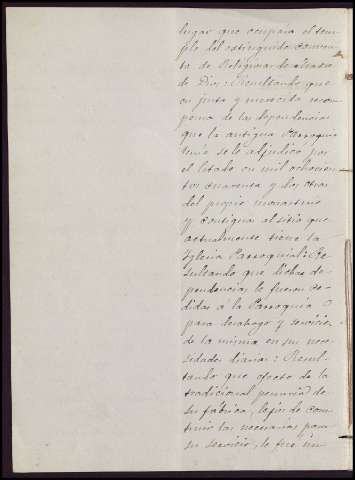 lugar que ocupara el tem-
plo del estinguido conven-
to de Religiosas de Madre
de Dios: Resultando que
en justa y merecida recom-
pensa de las dependencias
que la antigua Parroquia
tenia se le adjudicó por
el Estado en mil ochocien-
tos cuarenta y dos otras
del propio monasterio
y contiguas al sitio que
actualmente tiene la
Iglesia Parroquial: Re-
sultando que dichas de-
pendencias le fueron ce-
didas á la Parroquia
para desahogo y servicio
de la misma en sus nece-
sidades diarias: Resul-
tando que efecto de la
tradicional penuria de
su fábrica, lejos de cons-
truir las necesarias para
su servicio, le fué im-